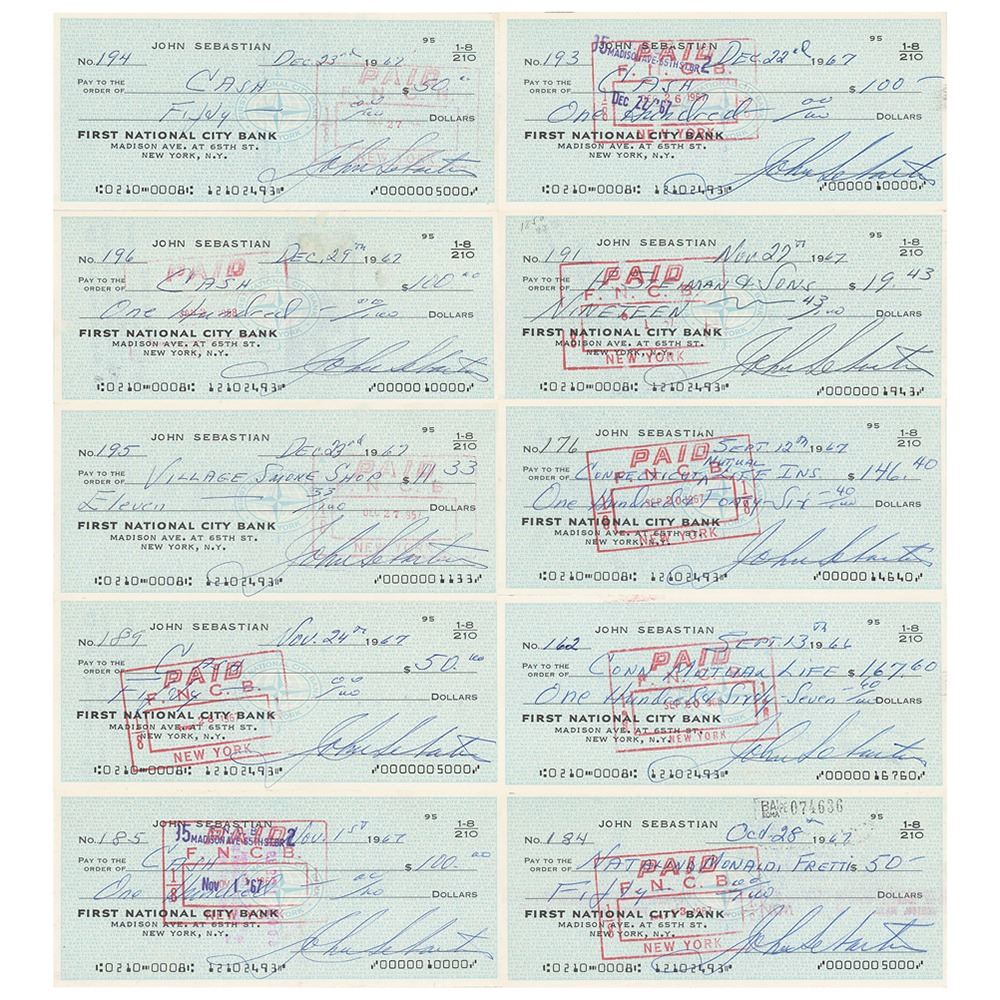 JOHN SEBASTIAN
95
1-8
210
No. 194 Dec. 23rd 1967
PAY TO THE ORDER OF CASH $50.00
Fifty 00/100 DOLLARS
FIRST NATIONAL CITY BANK
MADISON AVE. AT 65TH ST.
NEW YORK, N.Y.
John Sebastian
PAID
F. N. C. B.
DEC 27
NEW YORK
0210 0008 12102493 0000005000
JOHN SEBASTIAN
95
1-8
210
No. 193 Dec. 22nd 1967
PAY TO THE ORDER OF CASH $100-
One Hundred 00/100 DOLLARS
FIRST NATIONAL CITY BANK
MADISON AVE. AT 65TH ST.
NEW YORK, N.Y.
John Sebastian
MADISON AVE-65TH ST BR 2
DEC 22 '67
PAID
F. N. C. B.
DEC 26 1967
NEW YORK
0210 0008 12102493 0000010000
JOHN SEBASTIAN
95
1-8
210
No. 196 Dec. 29th 1967
PAY TO THE ORDER OF CASH $100.00
One Hundred - 00/100 DOLLARS
FIRST NATIONAL CITY BANK
MADISON AVE. AT 65TH ST.
NEW YORK, N.Y.
John Sebastian
PAID
0210 0008 12102493 0000010000
JOHN SEBASTIAN
95
1-8
210
No. 191 Nov 27th 1967
PAY TO THE ORDER OF & SONS $19.43
NINETEEN 43/100 DOLLARS
FIRST NATIONAL CITY BANK
MADISON AVE. AT 65TH ST.
NEW YORK, N.Y.
John Sebastian
PAID
F. N. C. B.
NEW YORK
0210 0008 12102493 0000001943
JOHN SEBASTIAN
95
1-8
210
No. 195 Dec 23rd 1967
PAY TO THE ORDER OF VILLAGE SMOKE SHOP $11.33
Eleven 33/100 DOLLARS
FIRST NATIONAL CITY BANK
MADISON AVE. AT 65TH ST.
NEW YORK, N.Y.
John Sebastian
PAID
F. N. C. B.
DEC 27 1967
NEW YORK
0210 0008 12102493 0000001133
JOHN SEBASTIAN
95
1-8
210
No. 176 Sept 12th 1967
PAY TO THE ORDER OF CONNECTICUT MUTUAL LIFE INS. $146.40
One Hundred Forty Six - 40/100 DOLLARS
FIRST NATIONAL CITY BANK
MADISON AVE. AT 65TH ST.
NEW YORK, N.Y.
John Sebastian
PAID
F. N. C. B.
SEP 20 1967
NEW YORK
0210 0008 12102493 0000014640
JOHN SEBASTIAN
95
1-8
210
No. 189 Nov. 24th 1967
PAY TO THE ORDER OF Cash $50.00
Fifty 00/100 DOLLARS
FIRST NATIONAL CITY BANK
MADISON AVE. AT 65TH ST.
NEW YORK, N.Y.
John Sebastian
PAID
F. N. C. B.
NEW YORK
0210 0008 12102493 0000005000
JOHN SEBASTIAN
95
1-8
210
No. 162 Sept. 13th 1966
PAY TO THE ORDER OF CONN. MUTUAL LIFE $167.60
One Hundred Sixty Seven - 60/100 DOLLARS
FIRST NATIONAL CITY BANK
MADISON AVE. AT 65TH ST.
NEW YORK, N.Y.
John Sebastian
PAID
F. N. C. B.
NEW YORK
0210 0008 12102493 0000016760
JOHN SEBASTIAN
95
1-8
210
No. 185 Nov. 1st 1967
PAY TO THE ORDER OF CASH $100.00
One Hundred 00/100 DOLLARS
FIRST NATIONAL CITY BANK
MADISON AVE. AT 65TH ST.
NEW YORK, N.Y.
John Sebastian
MADISON AVE-65TH ST BR 2
NOV 1 '67
PAID
F. N. C. B.
NEW YORK
0210 0008 12102493 0000010000
074636
JOHN SEBASTIAN
95
1-8
210
No. 184 Oct 28th 1967
PAY TO THE ORDER OF $50-
Fifty 00/100 DOLLARS
FIRST NATIONAL CITY BANK
MADISON AVE. AT 65TH ST.
NEW YORK, N.Y.
John Sebastian
PAID
F. N. C. B.
NEW YORK
0210 0008 12102493 0000005000